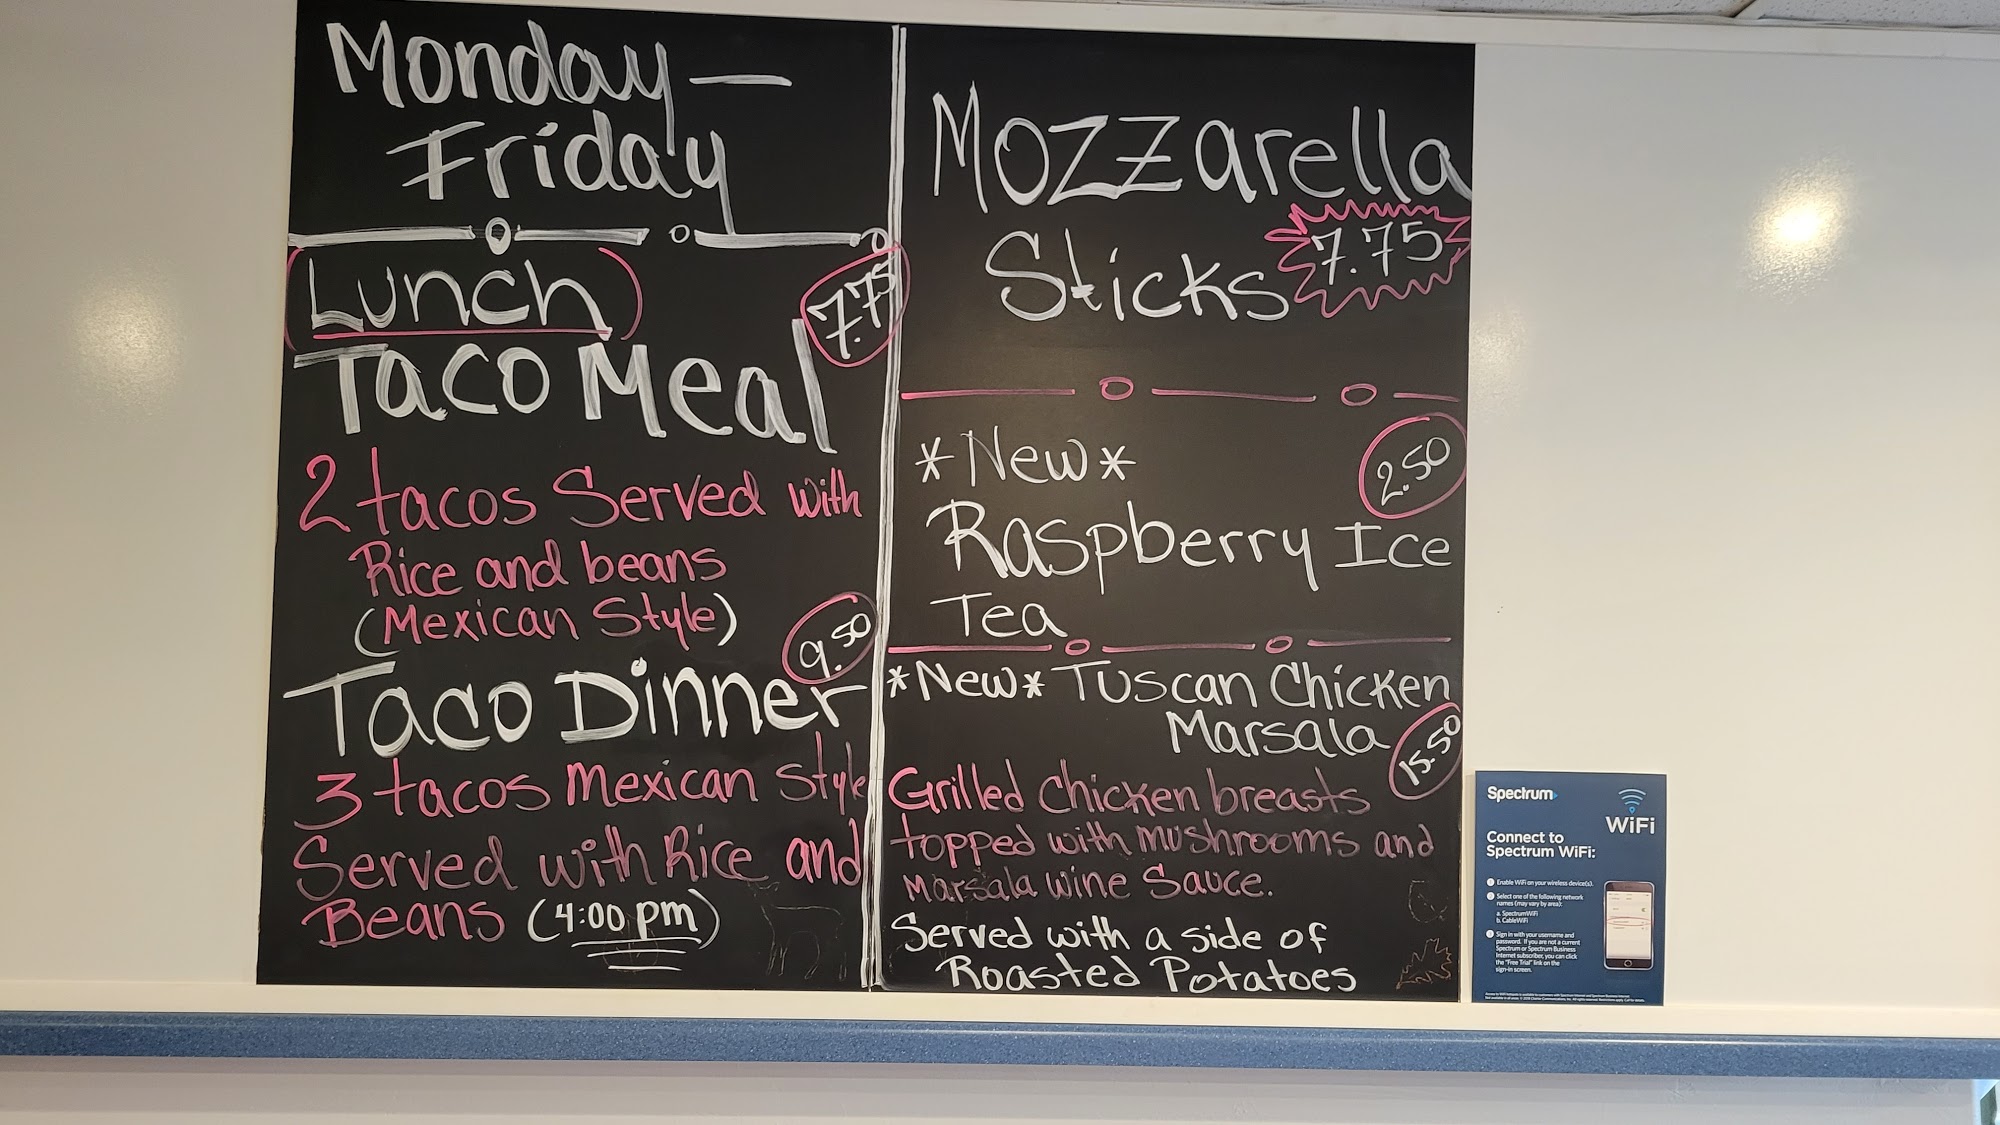 Monday —
Friday
Lunch
7.75
Taco Meal
2 tacos Served with
Rice and beans
(Mexican Style)
9.50
Taco Dinner
3 tacos Mexican Style
Served with Rice and
Beans (4:00 pm)
Mozzarella
Sticks
7.75
*New*
2.50
Raspberry Ice
Tea
*New* Tuscan Chicken
Marsala
15.50
Grilled Chicken breasts
topped with Mushrooms and
Marsala wine Sauce.
Served with a side of
Roasted Potatoes
Spectrum
WiFi
Connect to
Spectrum WiFi:
1 Enable WiFi on your wireless device(s).
2 Select one of the following network
names (may vary by area):
a. SpectrumWiFi
b. CableWiFi
3 Sign in with your username and
password. If you are not a current
Spectrum or Spectrum Business
Internet subscriber, you can click
the "Free Trial" link on the
sign-in screen.